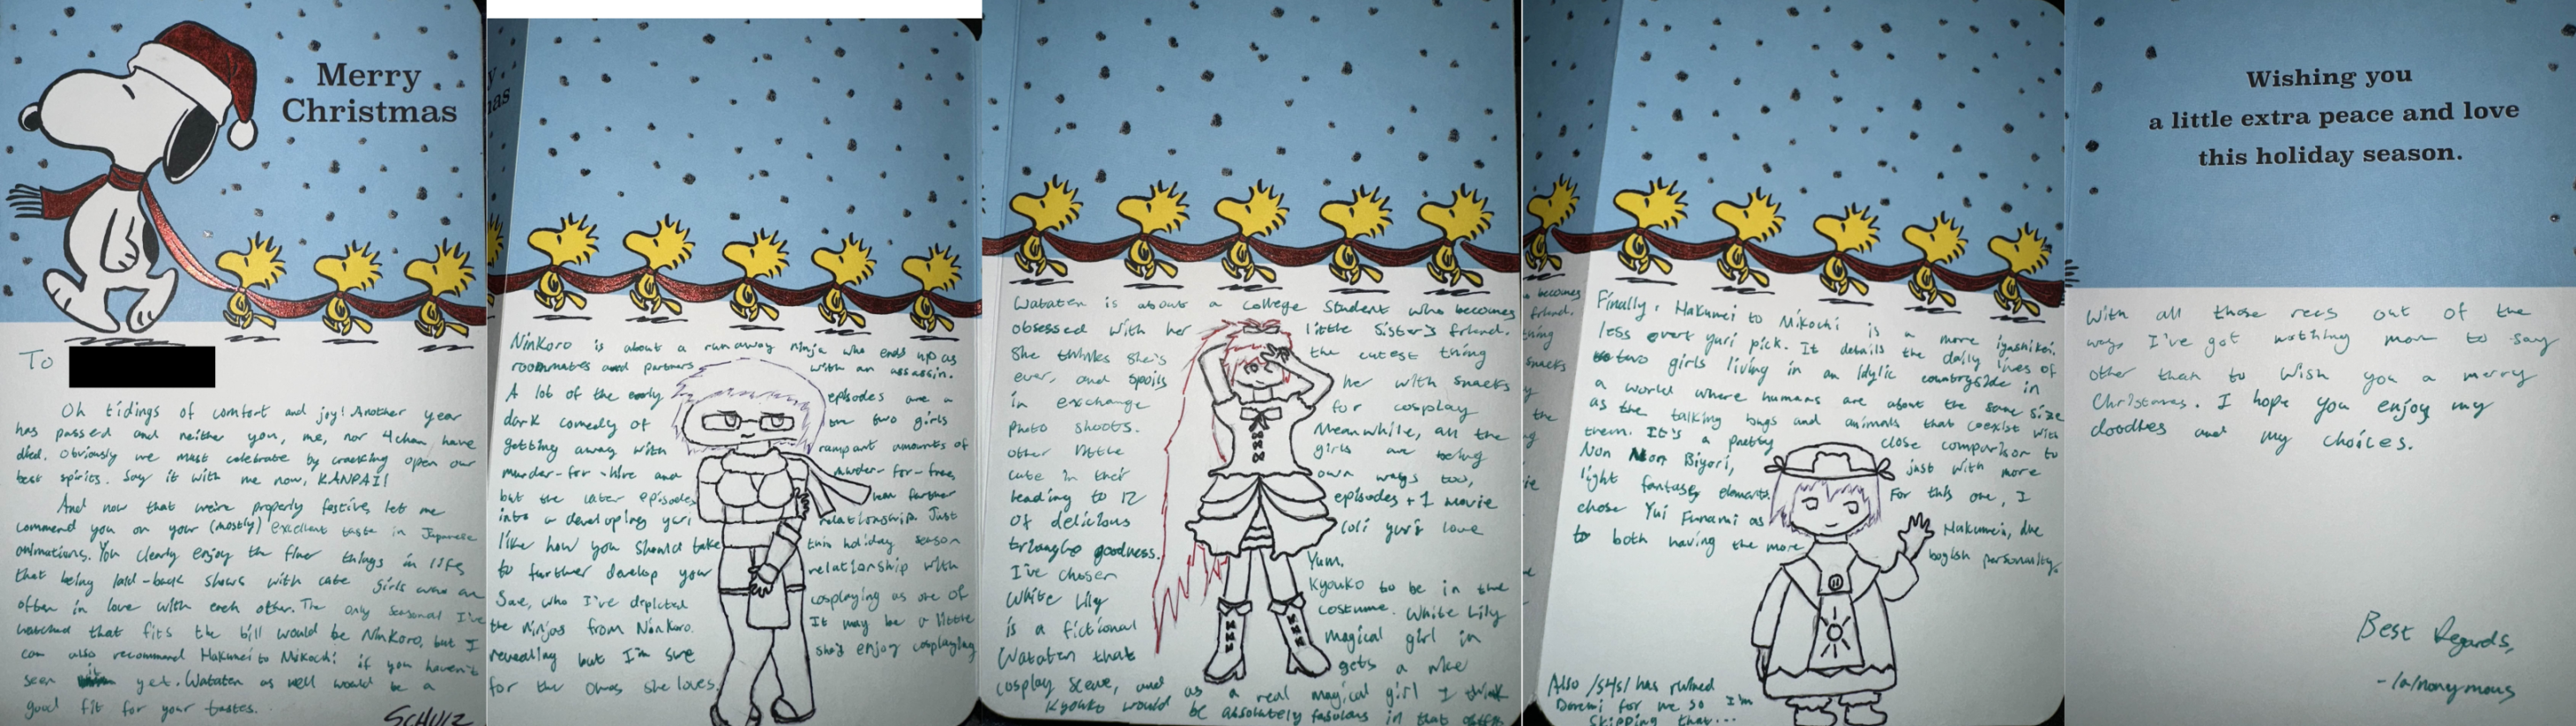 Merry
Christmas
To
Oh tidings of comfort and joy! Another year
has passed and neither you, me, nor 4chan have
died. Obviously we must celebrate by cracking open our
best spirits. Say it with me now, KANPAI!
And now that we're properly festive, let me
commend you on your (mostly) excellent taste in Japanese
animations. You clearly enjoy the finer things in life,
that being laid-back shows with cute girls who are
often in love with each other. The only seasonal I've
watched that fits the bill would be NinKoro, but I
can also recommend Hakumei to Mikochi if you haven't
seen it yet. Wataten as well would be a
good fit for your tastes.
SCHULZ
Ninkoro is about a runaway ninja who ends up as
roommates and partners with an assassin.
A lot of the early episodes are a
dark comedy of the two girls
getting away with rampant amounts of
murder-for-hire and murder-for-free
but the later episodes lean further
into a developing yuri relationship. Just
like how you should take this holiday season
to further develop your relationship with
Sae, who I've depicted cosplaying as one of
the ninjas from NinKoro. It may be a little
revealing but I'm sure she'd enjoy cosplaying
for the ones she loves.
Wataten is about a college student who becomes
obsessed with her little sister's friend.
She thinks she's the cutest thing
ever, and spoils her with snacks
in exchange for cosplay
photo shoots. Meanwhile, all the
other little girls are being
cute in their own ways too,
leading to 12 episodes + 1 movie
of delicious loli yuri love
triangle goodness. Yum.
I've chosen Kyouko to be in the
White Lily costume. White Lily
is a fictional magical girl in
Wataten that gets a nice
cosplay scene, and as a real magical girl I think
Kyouko would be absolutely fabulous in that
Finally, Hakumei to Mikochi is a more iyashikei,
less overt yuri pick. It details the daily lives of
two girls living in an idylic countryside in
a world where humans are about the same size
as the talking bugs and animals that coexist with
them. It's a pretty close comparison to
Non Non Biyori, just with more
light fantasy elements. For this one, I
chose Yui Funami as Hakumei, due
to both having the more boyish personality.
Also /s4s/ has ruined
Doremi for me so I'm
skipping that...
Wishing you
a little extra peace and love
this holiday season.
With all those recs out of the
way, I've got nothing more to say
other than to wish you a merry
Christmas. I hope you enjoy my
doodles and my choices.
Best Regards,
-/a/nonymous